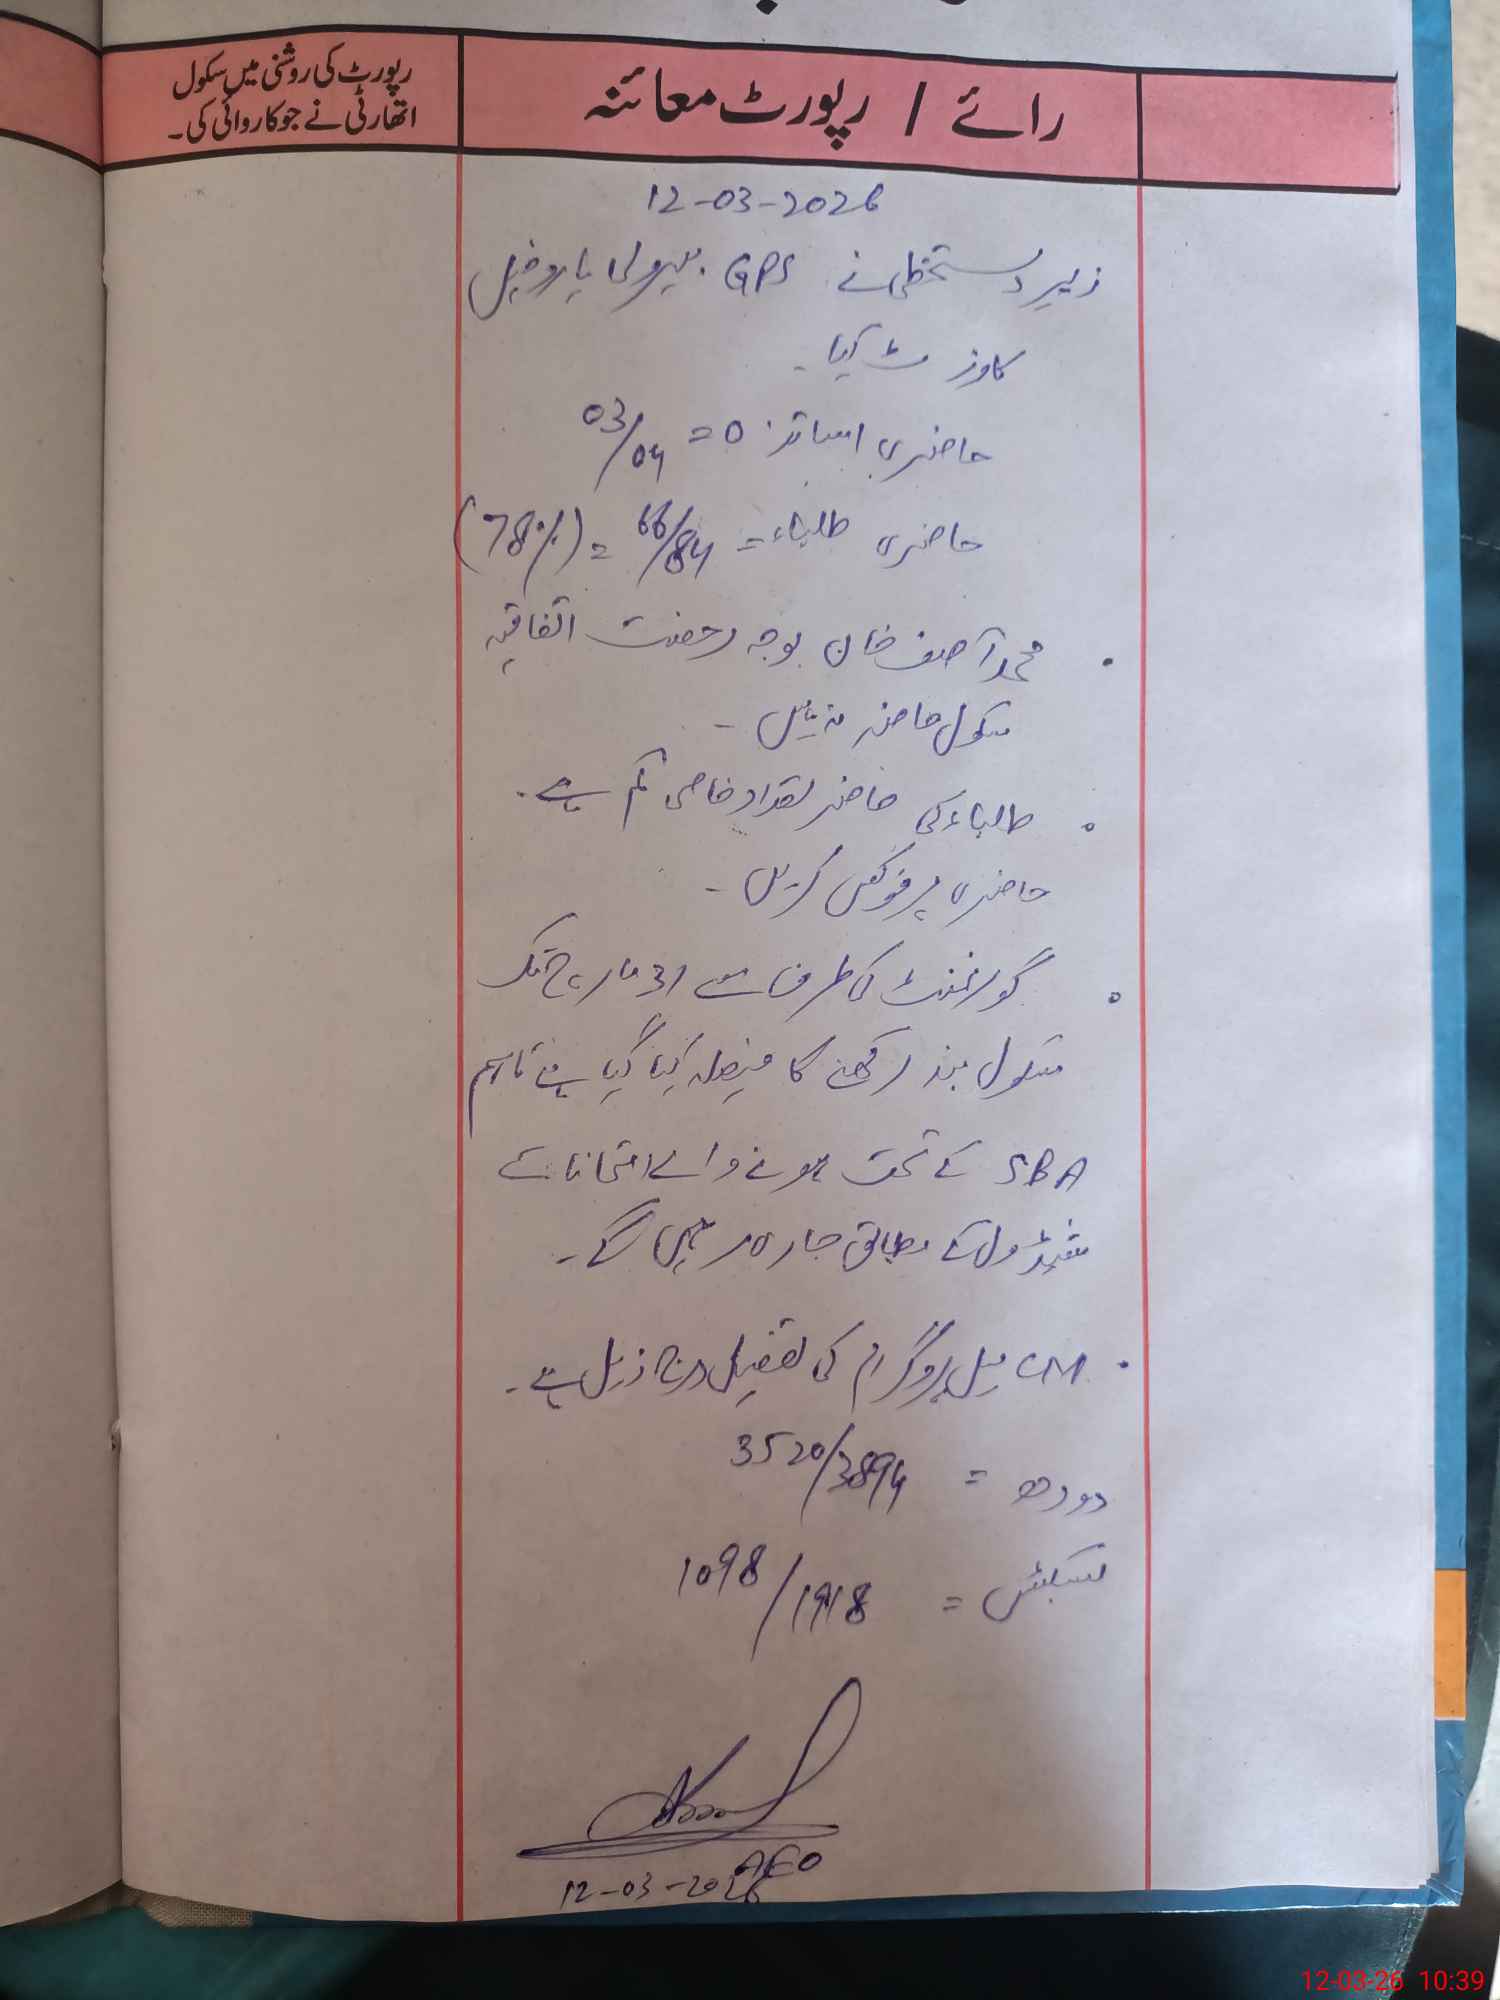 رپورٹ کی روشنی میں سکول
اتھارٹی نے جو کاروائی کی۔
رائے / رپورٹ معائنہ
12-03-2026
زیر دستخطی نے GPS
کا وزٹ کیا۔
حاضری اساتذہ = 03/04
حاضری طلباء = 66/84 = (78%)
محمد آصف خان بوجہ رخصت اتفاقیہ
سکول حاضر نہ ہیں۔
طلباء کی حاضر تعداد خاصی کم ہے۔
حاضری پر فوکس کریں۔
گورنمنٹ کی طرف سے 31 مارچ تک
سکول بند رکھنے کا فیصلہ کیا گیا ہے تاہم
SBA کے تحت ہونے والے امتحانات
شیڈول کے مطابق جاری رہیں گے۔
CM میل پروگرام کی تفصیل درج ذیل ہے۔
دودھ = 3520/3894
بسکٹس = 1098/1918
AEO
12-03-2026
12-03-26 10:39